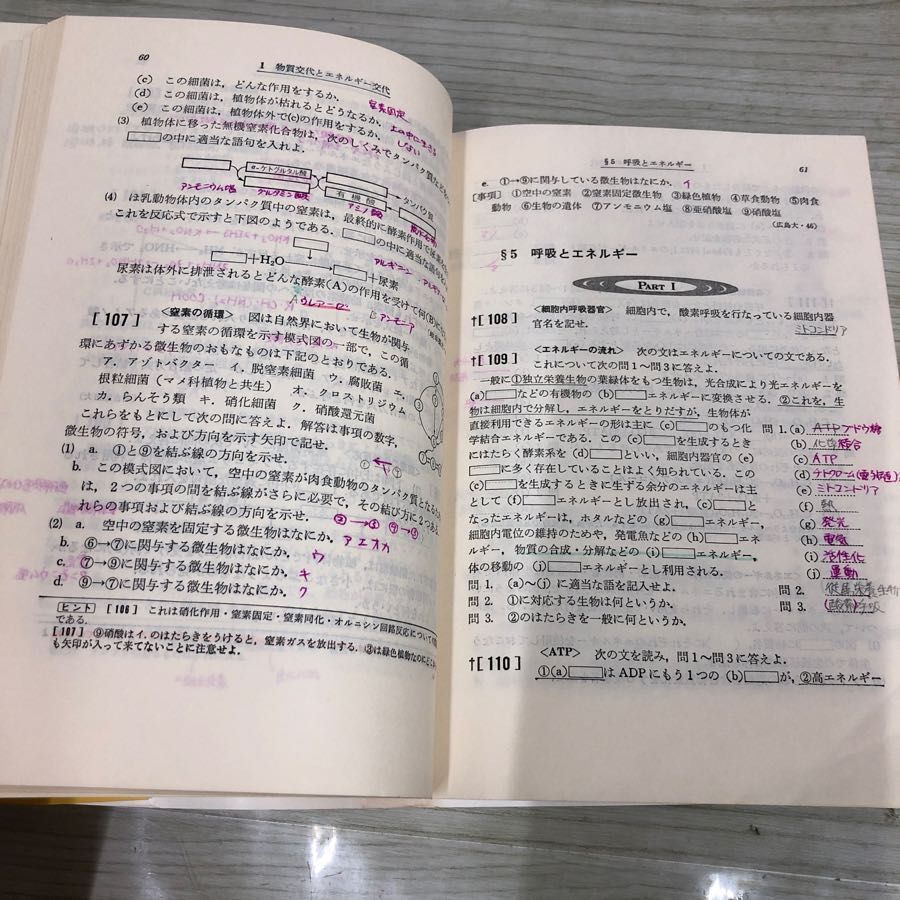 60
1 物質交代とエネルギー交代
(c) この細菌は，どんな作用をするか． 窒素固定
(d) この細菌は，植物体が枯れるとどうなるか．
(e) この細菌は，植物体外で(c)の作用をするか． しない
(3) 植物体に移った無機窒素化合物は，次のしくみでタンパク質
の中に適当な語句を入れよ．
α-ケトグルタル酸
タンパク質
アンモニウム塩 グルタミン酸 有機酸 アミノ酸
(4) ほ乳動物体内のタンパク質中の窒素は，最終的に酵素作用で尿素
これを反応式で示すと下図のようである．の中に適当な語句
+H₂O +尿素
アルギニン
尿素は体外に排泄されるとどんな酵素(A)の作用を受けて何(B)
A ウレアーゼ B アンモニア
[107] <窒素の循環> 図は自然界において生物が関与
する窒素の循環を示す模式図の一部で，この循
環にあずかる微生物のおもなものは下記のとおりである．
ア．アゾトバクター イ．脱窒素細菌 ウ．腐敗菌 エ．
根粒細菌（マメ科植物と共生） オ．クロストリジウム
カ．らんそう類 キ．硝化細菌 ク．硝酸還元菌
これらをもとにして次の問に答えよ．解答は事項の数字，
微生物の符号，および方向を示す矢印で記せ．
(1) a．①と⑨を結ぶ線の方向を示せ．
b．この模式図において，空中の窒素が肉食動物のタンパク質となるため
は，2つの事項の間を結ぶ線がさらに必要で，その結び方に2つある
れらの事項および結ぶ線の方向を示せ．
(2) a．空中の窒素を固定する微生物はなにか． アエオカ
b．⑥→⑦に関与する微生物はなにか． ウ
c．⑦→⑨に関与する微生物はなにか． キ
d．⑨→⑦に関与する微生物はなにか． ク
ヒント [106] これは硝化作用・窒素固定・窒素同化・オルニシン回路反応についての
である．
[107] ⑨硝酸はイ．のはたらきをうけると，窒素ガスを放出する．③は緑色植物なのに
も矢印が入って来てないことに注意せよ．
§5 呼吸とエネルギー
61
e．①→⑨に関与している微生物はなにか． イ
[事項] ①空中の窒素 ②窒素固定微生物 ③緑色植物 ④草食動物 ⑤肉食
動物 ⑥生物の遺体 ⑦アンモニウム塩 ⑧亜硝酸塩 ⑨硝酸塩
（広島大・46）
§5 呼吸とエネルギー
PART I
†[108] <細胞内呼吸器官> 細胞内で，酸素呼吸を行なっている細胞内器
官名を記せ． ミトコンドリア
†[109] <エネルギーの流れ> 次の文はエネルギーについての文である．
これについて次の問1～問3に答えよ．
一般に①独立栄養生物の葉緑体をもつ生物は，光合成により光エネルギーを
(a)などの有機物の(b)エネルギーに変換させる．②これを，生
物は細胞内で分解し，エネルギーをとりだすが，生物体が
直接利用できるエネルギーの形は主に(c)のもつ化
学結合エネルギーである．この(c)を生成するとき
にはたらく酵素系を(d)といい，細胞内器官の(e)
に多く存在していることはよく知られている．この
(c)を生成するときに生ずる余分のエネルギーは主
として(f)エネルギーとして放出され，(c)と
なったエネルギーは，ホタルなどの(g)エネルギー，
細胞内電位の維持のためや，発電魚などの(h)エネ
ルギー，物質の合成・分解などの(i)エネルギー，
体の移動の(j)エネルギーとし利用される．
問1．(a)～(j)に適当な語を記入せよ．
問2．①に対応する生物は何というか．
問3．②のはたらきを一般に何というか．
問1．(a) ATP ブドウ糖
(b) 化学結合
(c) ATP
(d) チトクローム(電子伝達)
(e) ミトコンドリア
(f) 熱
(g) 発光
(h) 電気
(i) 活性化
(j) 運動
問2． 従属栄養生物
問3． (酸素)呼吸
†[110] <ATP> 次の文を読み，問1～問3に答えよ．
①(a)はADPにもう1つの(b)が，②高エネルギー